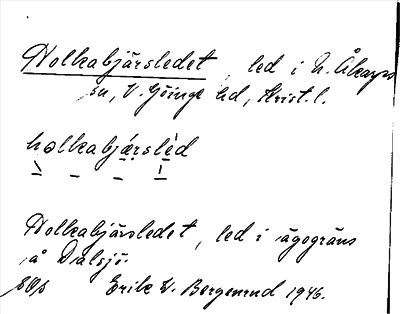 Holkabjärsledet, led i N. Åkarps
sn, V. Göinge hd, Krist. l.
holkabjárslèd
Holkabjärsledet, led i ägogräns
å Dalsjö.
Erik W. Bergenrud 1946.